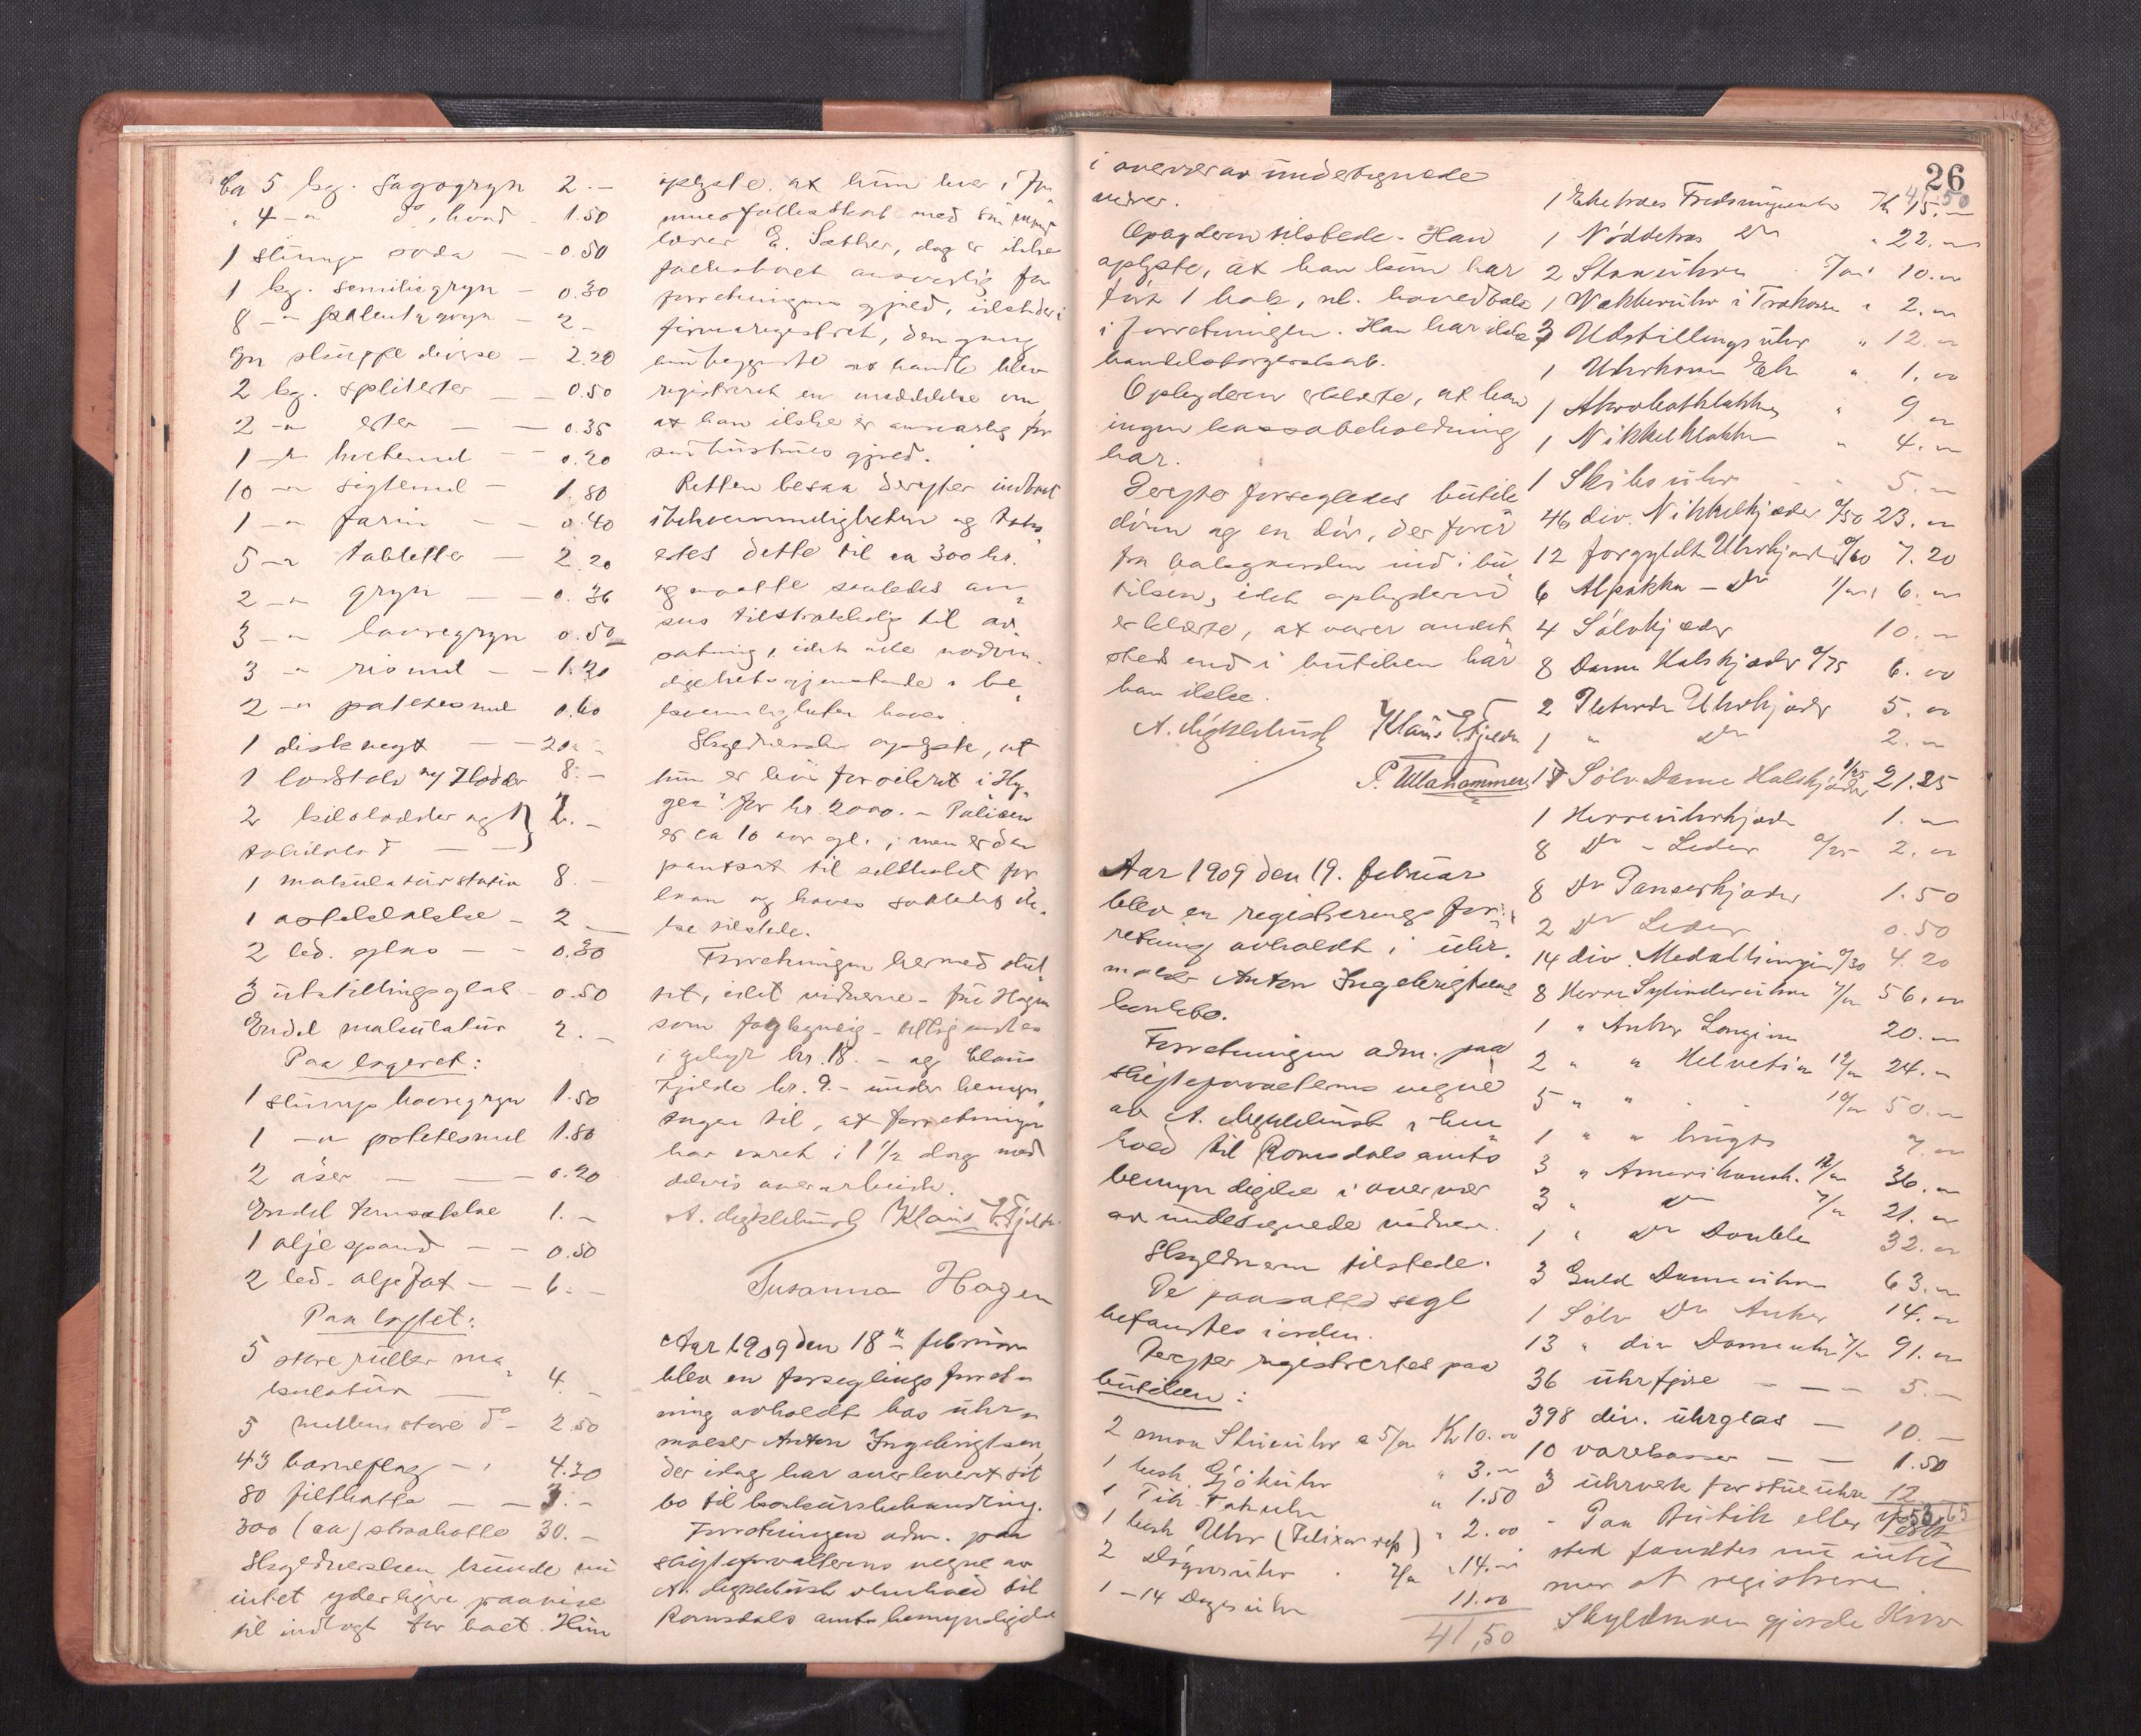 Ca 5 kg. sagogryn 2.-
" 4 -"- do, hvid - 1.50
1 slump soda - - 0.50
1 kg. semiliegryn - 0.30
8 -"- gryn - 2.-
En slumpe diverse - 2.20
2 kg. spliterter - - 0.50
2 -"- erter - - 0.35
1 -"- hvetemel - - 0.20
10 -"- sigtemel - 1.80
1 -"- farin - - 0.40
5 -"- tabletter - 2.20
2 -"- gryn - - 0.36
3 -"- havregryn 0.50
3 -"- rismel - - 1.20
2 -"- potetesmel 0.60
1 diskvegt - - 20.-
1 m/ Lodder 8.-
2 kilolodder og
1 makulaturstativ 8.-
1 - 2.-
2 led. glas - - 0.30
3 utstillingsglas - 0.50
Endel makulatur 2.-
Paa lageret:
1 slump havregryn 1.50
1 -"- potetesmel 1.80
2 øser - - - 0.20
Endel 1.-
1 oljespand - - 0.50
2 led. oljefat - - 6.-
Paa loftet:
5 store ruller ma-
kulatur - 4.-
5 mellemstore do - 2.50
43 barneplag - 4.30
80 filthatte - - 3.-
300 (ca) straahatte 30.-
Skyldnersken kunde nu
intet yderligere paavise
til indtægt for boet. Hun
oplyste, at hun lever i
med sin mand
lærer E. Sæther, dog er ikke
fællesboet ansvarlig for
forretningens gjæld, idet der i
firmaregistret, den gang
hun begyndte at handle blev
registreret en meddelelse om
at han ikke er ansvarlig for
sin hustrues gjæld.
Retten besaa derefter indbo
i bekvemmeligheten og takse-
res dette til ca 300 kr.
og maatte saaledes an-
sees tilstrækkelig til ut-
satning, idet alle nødven-
dighetsgjenstande i be-
kvemligheten haves.
Skyldnersken oplyste, at
hun er livsforsikret i "Hy-
gea" for kr. 2000.- Policen
er ca 10 aar gl., men er den
pantsat til selskapet for
laan og haves saaledes ik-
ke tilstede.
Forretningen hermed slut-
tet, idet vidnerne - fru Hagen
som fagkyndig - tillagdes
i gebyr kr. 18.- og Claus
Fjelde kr. 9.- under hensyn
tagen til, at forretningen
har varet i 1 1/2 dag med
delvis overarbeide.
Klaus E. Fjelde
Susanna Hagen
Aar 1909 den 18de februar
blev en forseglingsforret-
ning avholdt hos uhr-
maker Anton Ingebrigtsen,
der idag har overlevert sit
bo til konkursbehandling.
Forretningen adm. paa
skifteforvalterens vegne av
i henhold til
Romsdals amts bemyndigelse
26
i overvær av undertegnede
vidner.
Opbyderen tilstede. Han
oplyste, at han kun har
ført 1 bok, nl. hovedbok
i forretningen. Han har ikke
handelsborgerskab.
Opbyderen erklærte, at han
ingen kassabeholdning
har.
Derefter forsegledes butik
døren og en dør, der fører
fra bakgaarden ind i bu-
tikken, idet opbyderen
erklærte, at varer andet-
sted end i butiken har
han ikke.
Klaus E. Fjelde
P. Ullahammer
Aar 1909 den 19. februar
blev en registreringsfor-
retning avholdt i uhr-
maker Anton Ingebrigtsens
konkbo.
Forretningen adm. paa
skifteforvalterens vegne
av i hen-
hold til Romsdals amts
bemyndigelse i overvær
av undertegnede vidner.
Skyldneren tilstede.
De paasatte segl
befandtes i orden.
Derefter registrertes paa
butikken:
2 smaa Stueuhr a 5/00 Kr 10.00
1 lush. Gjøkuhr " 3.-
1 Tik Takuhr " 1.50
1 lush Uhr " 2.00
2 Døgnsuhr 7/00 " 14.-
1 - 14 Dages uhr 11.00
41,50
41,50
1 Eketræs Fredsminguhr Kr 15.-
1 Nøddetræs do " 22.-
2 Staauhre 5/00 10.-
1 Vækkeruhr i Trækasse " 2.-
3 Udstillingsuhr " 12.-
1 Uhrkasse Ek " 1.00
1 Akrobatklokke " 9.-
1 Nikkelklokke " 4.-
1 Skibsuhr " 5.-
46 div. Nikkelkjæder 0/50 23.-
12 forgyldte Uhrkjæder 0/60 7.20
6 Alpakka - do 1/00 6.-
4 Sølvkjæder 10.-
8 Dame Halskjæder 0/75 6.00
2 Pleterede Uhrkjæder 5.00
1 " do 2.-
17 Sølv Dame Halskjæder 1/25 21.25
1 Herreuhrkjæde 1.-
8 do - Læder 0/25 2.00
8 do Panserkjæder 1.50
2 do Læder 0.50
14 div. Medallionger 0/30 4.20
8 Herre Sylinderuhre 7/00 56.00
1 " Anker Longines 20.-
2 " " Helvetia 12/00 24.-
5 " " 10/00 50.-
1 " " brugt 7.-
3 " Amerikansk. 12/00 36.-
3 " do 7/00 21.-
1 " do Double 32.00
3 Guld Dameuhre 63.-
1 Sølv do Anker 14.-
13 " div Dameuhr 7/00 91.-
36 uhrfjære - - - 5.-
398 div. uhrglas - 10.-
10 varekasser - - 1.50
3 uhrverk for stueuhre 12.-
- Paa Butik eller
sted fandtes nu intet
mer at registrere.
Skyldneren gjorde Krav